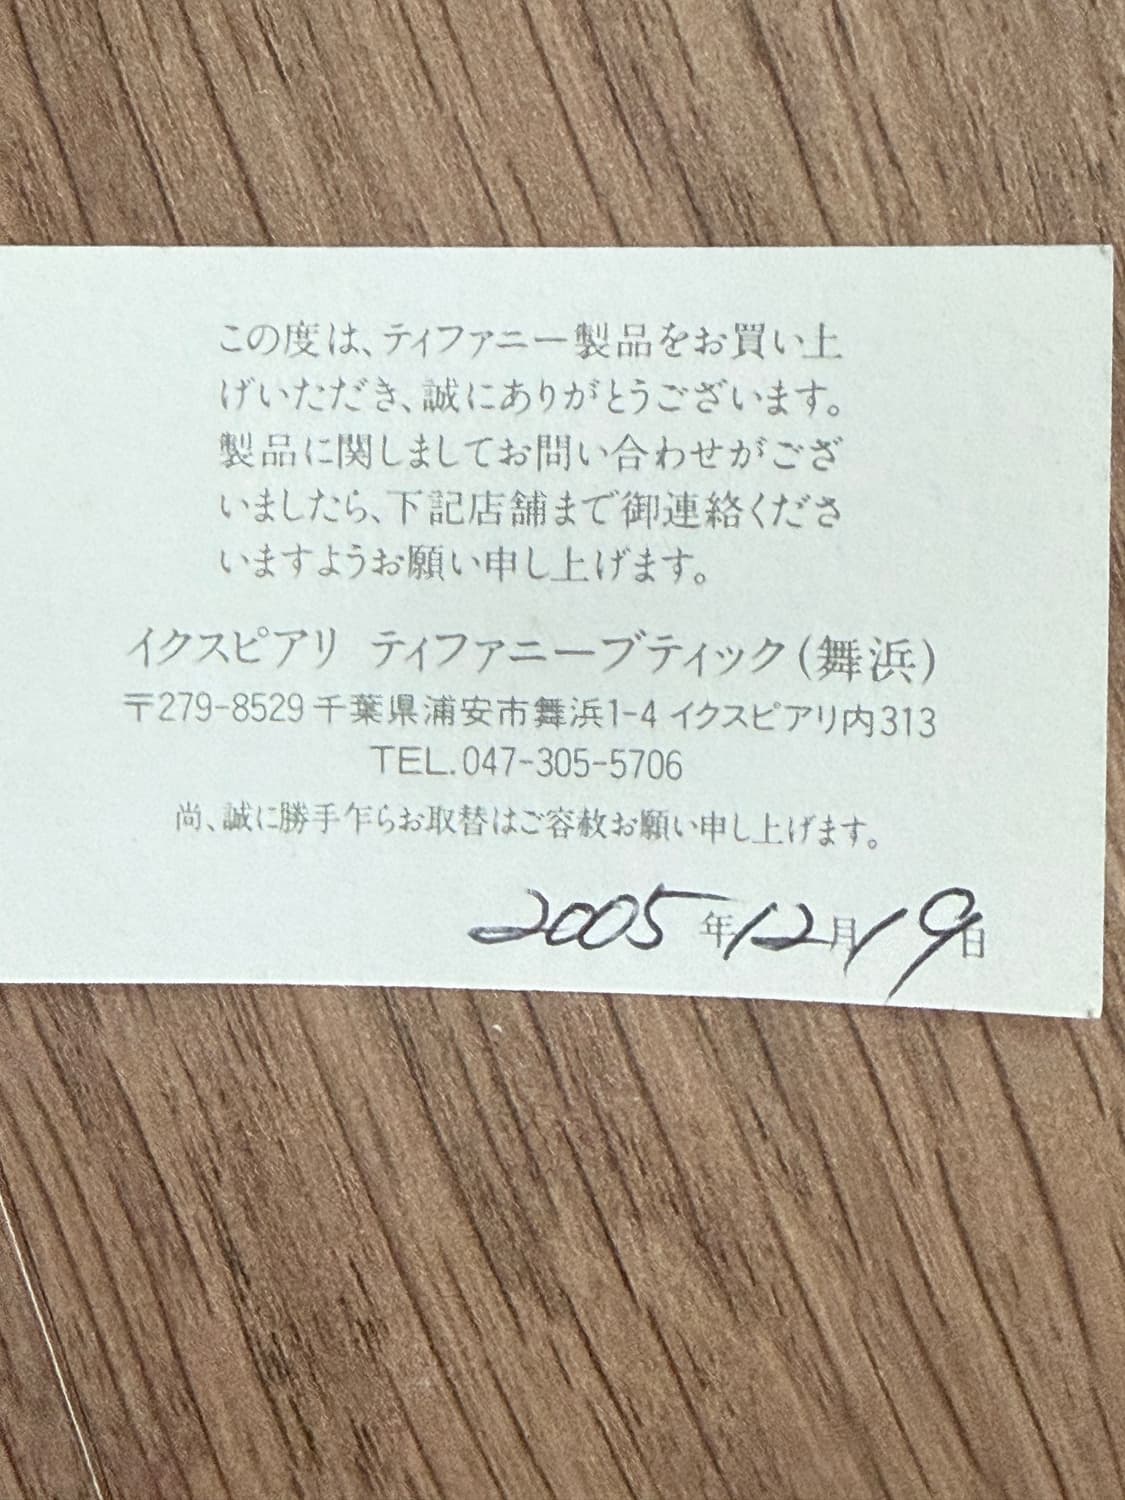 この度は、ティファニー製品をお買い上
げいただき、誠にありがとうございます。
製品に関しましてお問い合わせがござ
いましたら、下記店舗まで御連絡くださ
いますようお願い申し上げます。
イクスピアリ ティファニーブティック(舞浜)
〒279-8529 千葉県浦安市舞浜1-4 イクスピアリ内313
TEL.047-305-5706
尚、誠に勝手乍らお取替はご容赦お願い申し上げます。
2005年12月19日